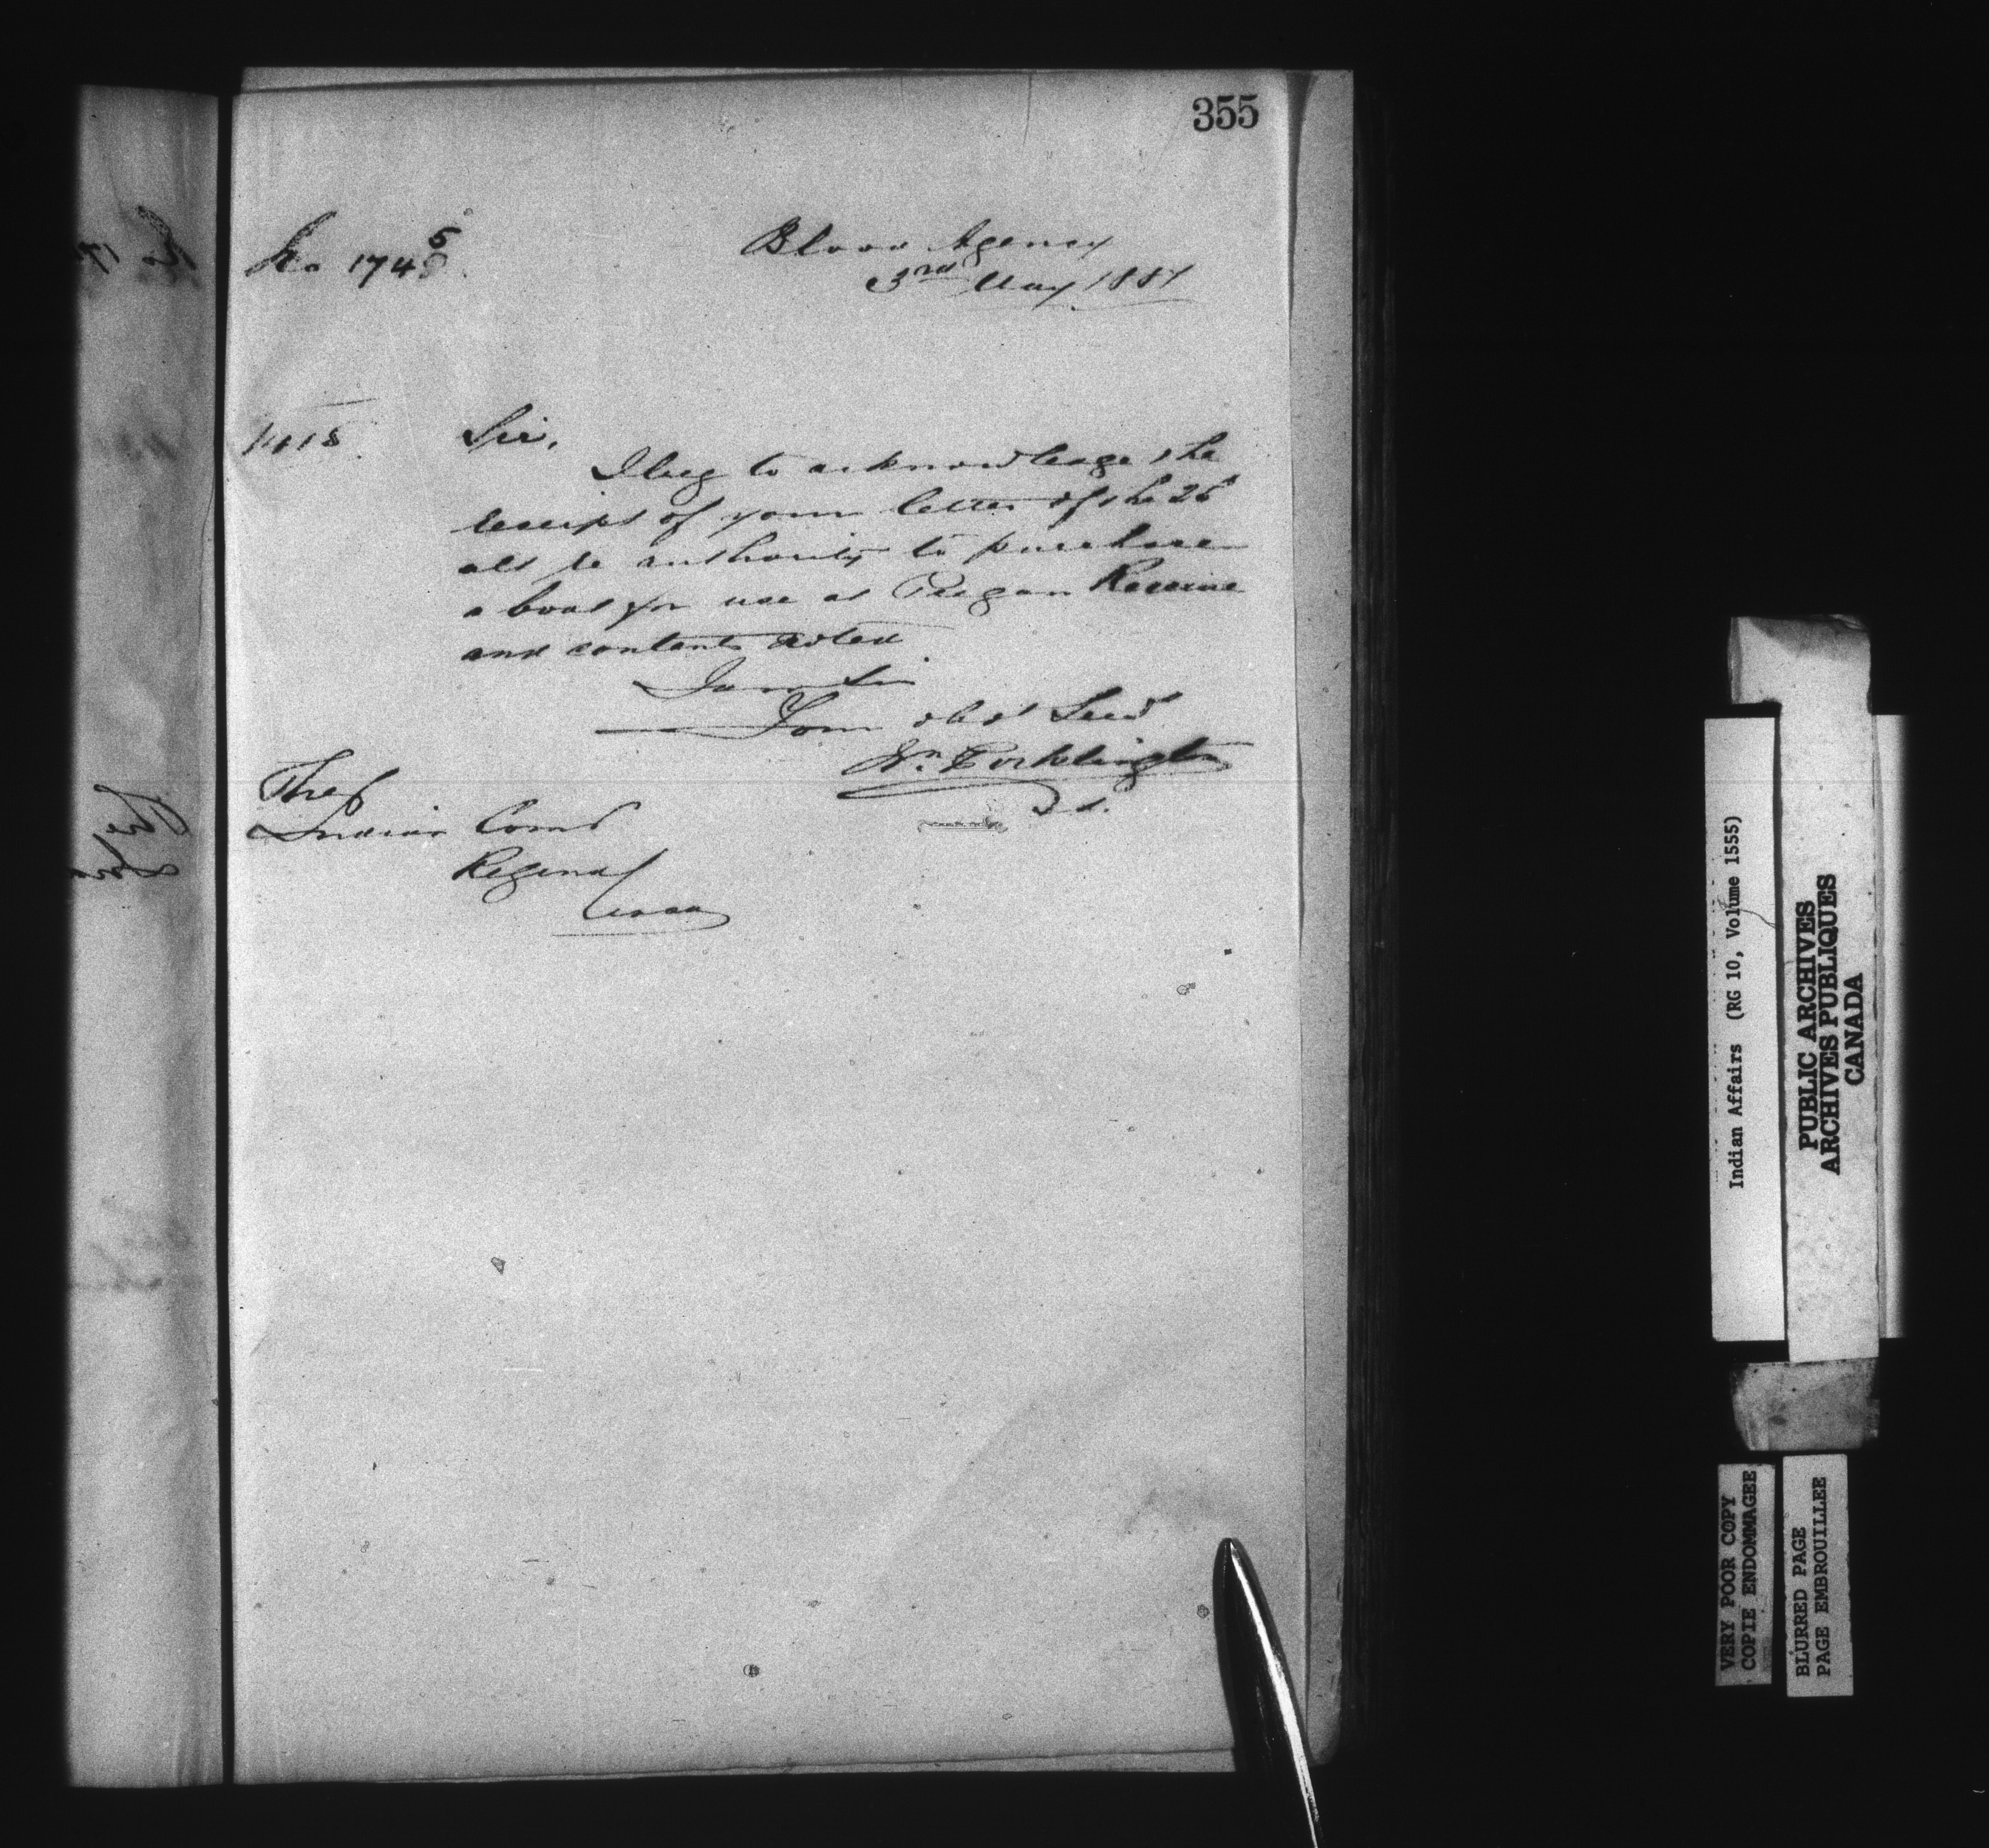 355
No 1745
Blood Agency
3rd May 1887
Sir,
I beg to acknowledge the
receipt of your letter of the 26
ult re authority to purchase
a boat for use at Peigan Reserve
and contents noted
I am Sir
Your obdt Servt
Wm Pocklington
The
Indian Comr
Regina
Assa
Indian Affairs (RG 10, Volume 1555)
PUBLIC ARCHIVES
ARCHIVES PUBLIQUES
CANADA
VERY POOR COPY
COPIE ENDOMMAGEE
BLURRED PAGE
PAGE EMBROUILLEE